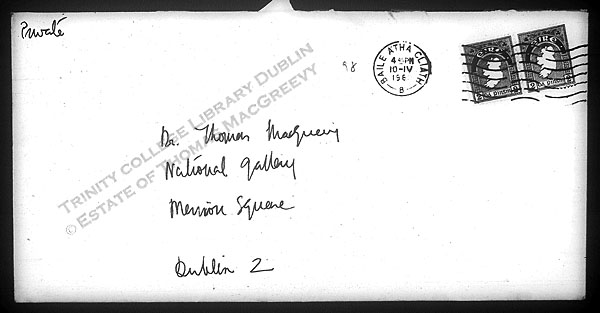 Private
98
BAILE ATHA CLIATH
4 45PM
10-IV
196
B
TRINITY COLLEGE LIBRARY DUBLIN
© ESTATE OF THOMAS MACGREEVY
Dr. Thomas MacGreevy
National Gallery
Merrion Square
Dublin 2